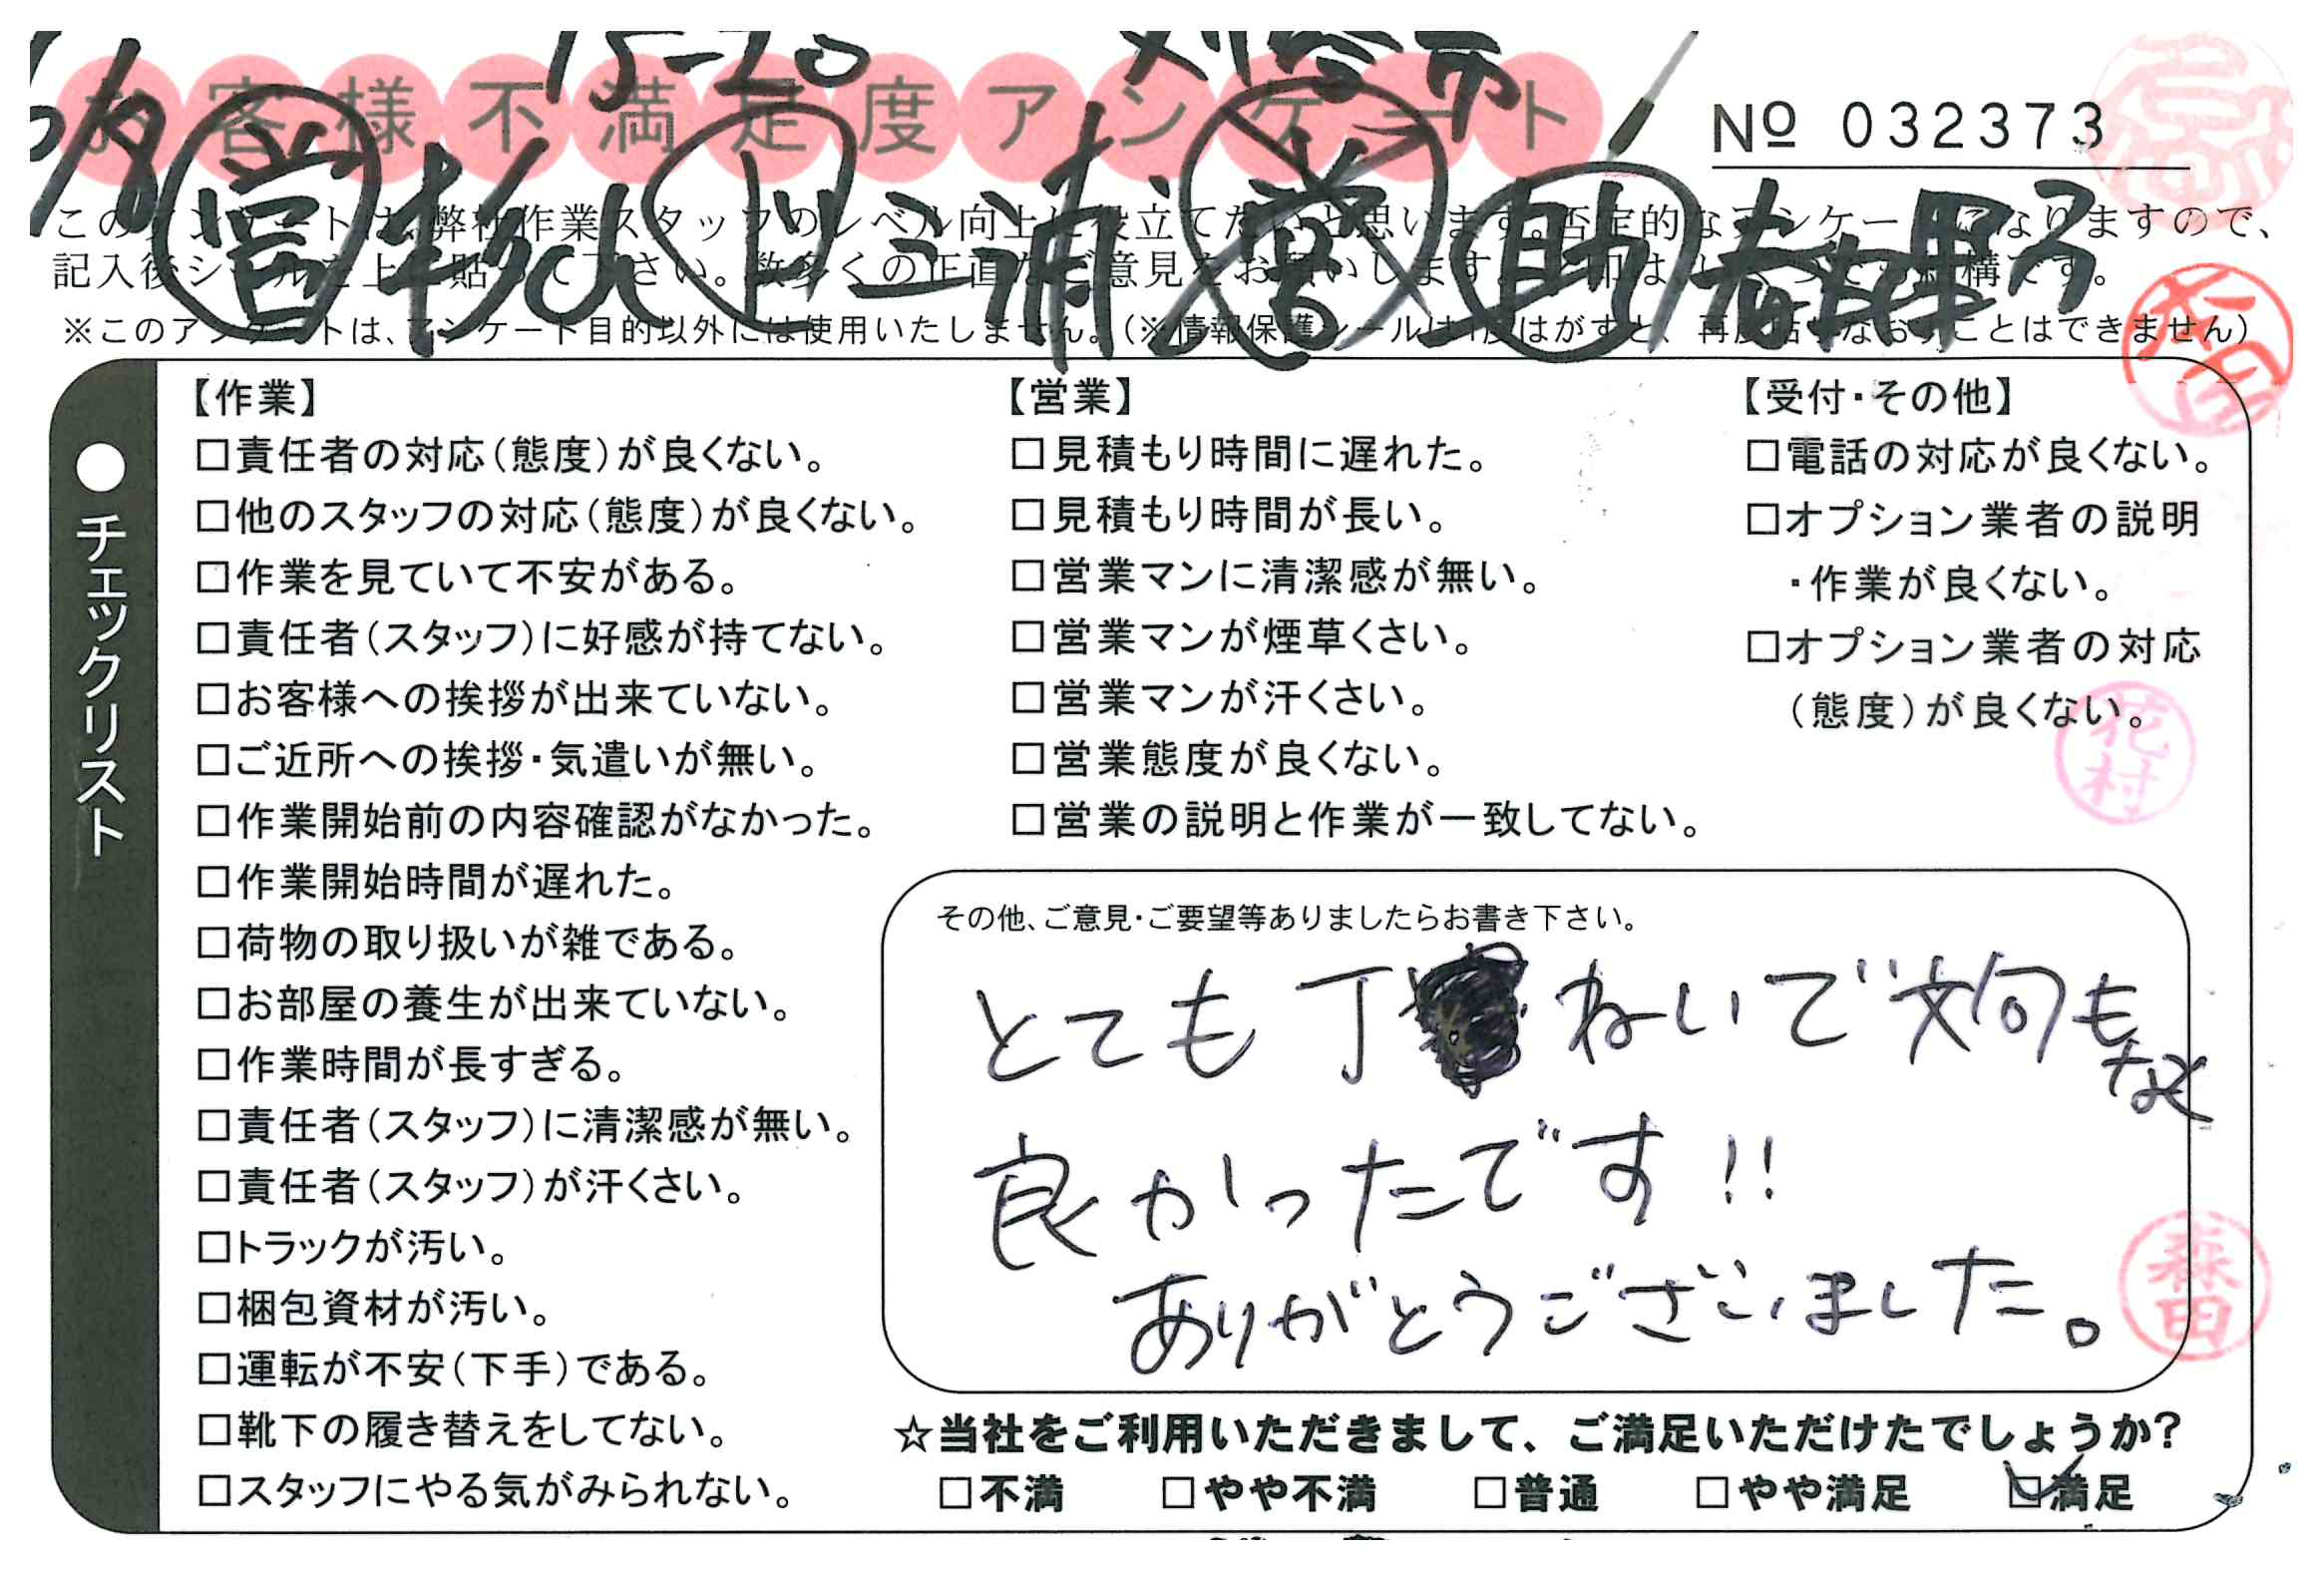 お客様不満足度アンケート
№ 032373
営 杉山 上 三浦 助 春日野
このアンケートは、弊社作業スタッフのレベル向上に役立てたいと思います。否定的なアンケートになりますので、
記入後シールを上に貼って下さい。数多くの正直なご意見をお願いします。
※このアンケートは、アンケート目的以外には使用いたしません。(※情報保護シールは1度はがすと、再度貼りなおすことはできません)
●チェックリスト
【作業】
□責任者の対応(態度)が良くない。
□他のスタッフの対応(態度)が良くない。
□作業を見ていて不安がある。
□責任者(スタッフ)に好感が持てない。
□お客様への挨拶が出来ていない。
□ご近所への挨拶・気遣いが無い。
□作業開始前の内容確認がなかった。
□作業開始時間が遅れた。
□荷物の取り扱いが雑である。
□お部屋の養生が出来ていない。
□作業時間が長すぎる。
□責任者(スタッフ)に清潔感が無い。
□責任者(スタッフ)が汗くさい。
□トラックが汚い。
□梱包資材が汚い。
□運転が不安(下手)である。
□靴下の履き替えをしてない。
□スタッフにやる気がみられない。
【営業】
□見積もり時間に遅れた。
□見積もり時間が長い。
□営業マンに清潔感が無い。
□営業マンが煙草くさい。
□営業マンが汗くさい。
□営業態度が良くない。
□営業の説明と作業が一致してない。
【受付・その他】
□電話の対応が良くない。
□オプション業者の説明
・作業が良くない。
□オプション業者の対応
(態度)が良くない。
花村
その他、ご意見・ご要望等ありましたらお書き下さい。
とても丁ねいで文句もなく
良かったです!!
ありがとうございました。
森田
☆当社をご利用いただきまして、ご満足いただけたでしょうか?
□不満 □やや不満 □普通 □やや満足 ☑満足